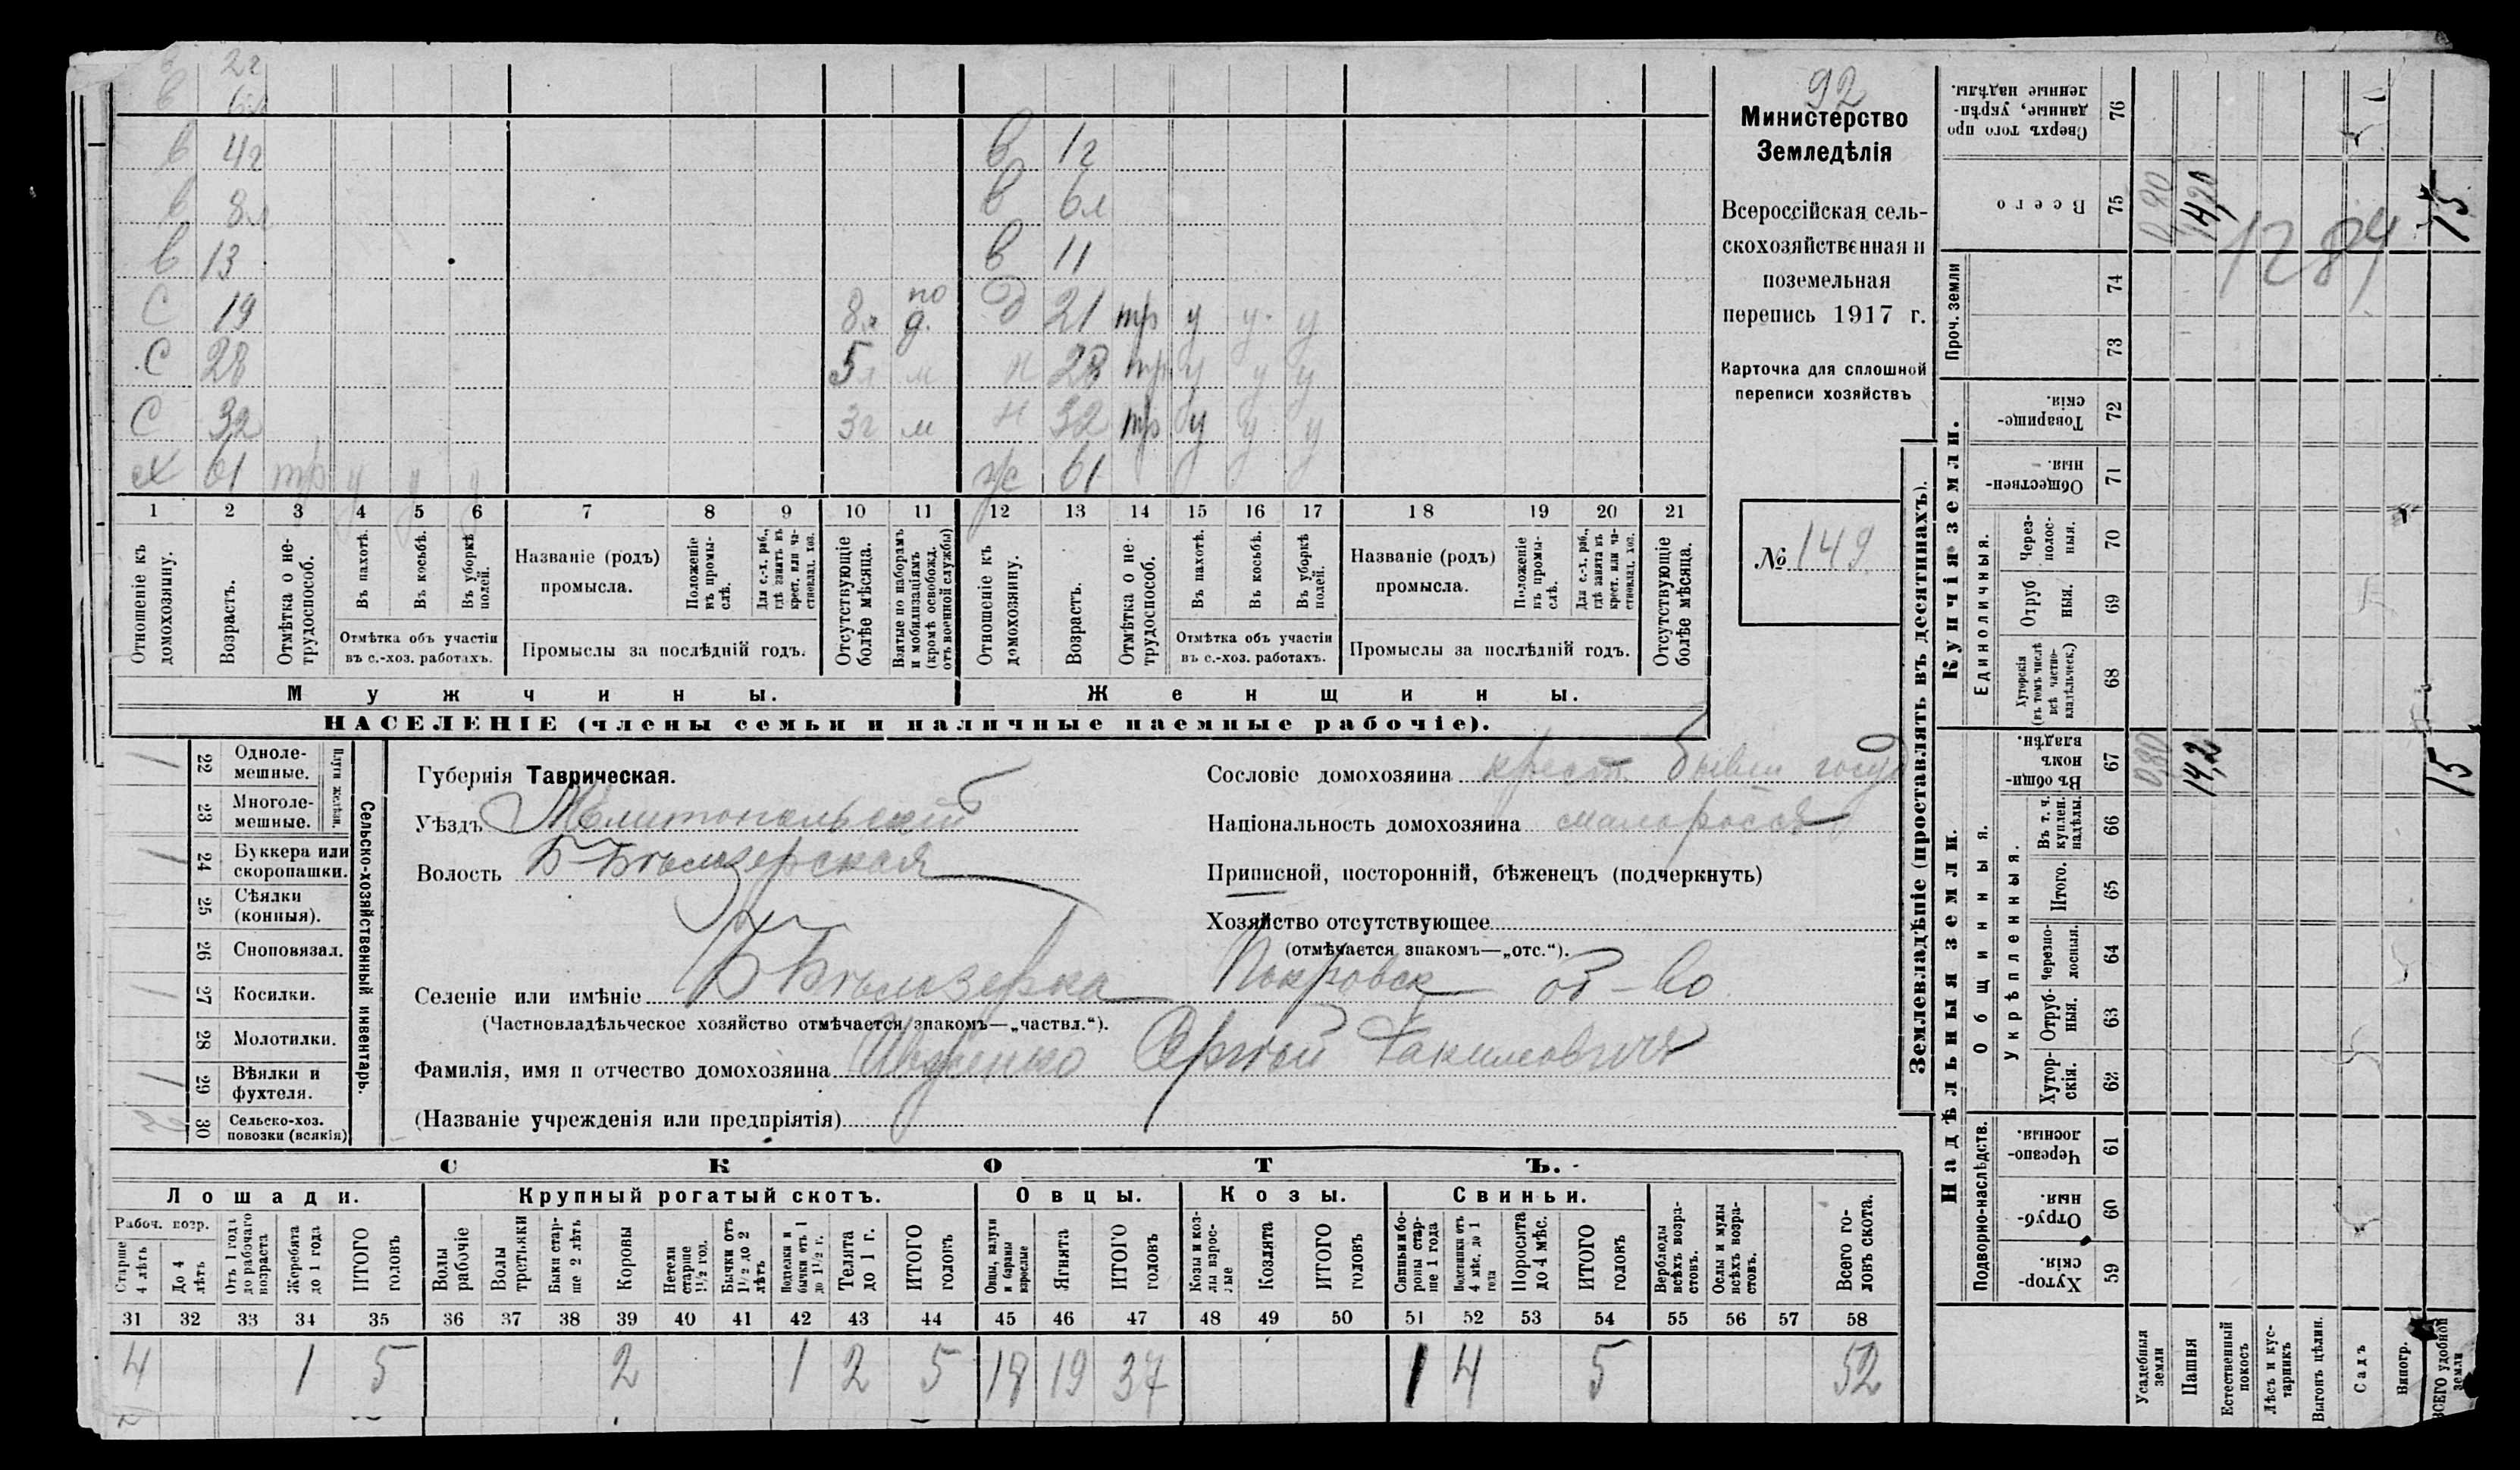 92
Министерство
Земледѣлія
Всероссійская сель-
скохозяйственная и
поземельная
перепись 1917 г.
Карточка для сплошной
переписи хозяйствъ
№ 149
в 2г
в 6л
в 4г в 1г
в 8л в 6л
в 13 в 11
С 19 8л по д. д 21 тр у у. у
С 28 5л м н 28 тр у у у
С 32 3г м н 32 тр у у у
х 61 тр у у у ж 61
1 2 3 4 5 6 7 8 9 10 11 12 13 14 15 16 17 18 19 20 21
Отношеніе къ домохозяину.
Возрастъ.
Отмѣтка о не-трудоспособ.
Въ пахотѣ.
Въ косьбѣ.
Въ уборкѣ полей.
Отмѣтка объ участіи
въ с.-хоз. работахъ.
Названіе (родъ)
промысла.
Положеніе въ промы-слѣ.
Для с.-х. раб., гдѣ занятъ въ крест. или ча-стновлад. хоз.
Промыслы за послѣдній годъ.
Отсутствующіе болѣе мѣсяца.
Взятые по наборамъ и мобилизаціямъ (кромѣ освобожд. отъ военной службы)
Отношеніе къ домохозяину.
Возрастъ.
Отмѣтка о не-трудоспособ.
Въ пахотѣ.
Въ косьбѣ.
Въ уборкѣ полей.
Отмѣтка объ участіи
въ с.-хоз. работахъ.
Названіе (родъ)
промысла.
Положеніе въ промы-слѣ.
Для с.-х. раб., гдѣ занята въ крест. или ча-стновлад. хоз.
Промыслы за послѣдній годъ.
Отсутствующіе болѣе мѣсяца.
Мужчины. Женщины.
НАСЕЛЕНІЕ (члены семьи и наличные наемные рабочіе).
Сельско-хозяйственный инвентарь.
Плуги желѣзн.
22 Одноле-мешные. 1
23 Многоле-мешные.
24 Буккера или скоропашки. 1
25 Сѣялки (конныя).
26 Сноповязал.
27 Косилки. 1
28 Молотилки.
29 Вѣялки и фухтеля. 1
30 Сельско-хоз. повозки (всякія) 2
Губернія Таврическая.
Уѣздъ Мелитопольскій
Волость Б-Бѣлозерская
Сословіе домохозяина крест. бывш госуд
Національность домохозяина малоросс
Приписной, посторонній, бѣженецъ (подчеркнуть)
Хозяйство отсутствующее
(отмѣчается знакомъ—„отс.“).
Селеніе или имѣніе Б Бѣлозерка Покровск об-во
(Частновладѣльческое хозяйство отмѣчается знакомъ—„частвл.“).
Фамилія, имя и отчество домохозяина Сергѣй
(Названіе учрежденія или предпріятія)
СКОТЪ.
Лошади. Крупный рогатый скотъ. Овцы. Козы. Свиньи.
Рабоч. возр.
Старше 4 лѣтъ
До 4 лѣтъ
Отъ 1 года до рабочаго возраста
Жеребята до 1 года
ИТОГО головъ
Волы рабочіе
Волы третьяки
Быки стар-ше 2 лѣтъ
Коровы
Нетели старше 1½ год.
Бычки отъ 1½ до 2 лѣтъ
Подтелки и бычки отъ 1 до 1½ г.
Телята до 1 г.
ИТОГО головъ
Овцы, валухи и бараны взрослые
Ягнята
ИТОГО головъ
Козы и коз-лы взрос-лые
Козлята
ИТОГО головъ
Свиньи и бо-ровы стар-ше 1 года
Подсвинки отъ 4 мѣс. до 1 года
Поросята до 4 мѣс.
ИТОГО головъ
Верблюды всѣхъ возра-стовъ.
Ослы и мулы всѣхъ возра-стовъ.
Всего го-ловъ скота.
31 32 33 34 35 36 37 38 39 40 41 42 43 44 45 46 47 48 49 50 51 52 53 54 55 56 57 58
4 1 5 2 1 2 5 18 19 37 1 4 5 52
Землевладѣніе (проставлять въ десятинахъ).
Надѣльныя земли.
Купчія земли.
Проч. земли
Подворно-наслѣдств.
Общинныя.
Укрѣпленныя.
Единоличныя.
Хутор-скія. 59
Отруб-ныя. 60
Черезпо-лосныя. 61
Хутор-скія. 62
Отруб-ныя. 63
Черезпо-лосныя. 64
Итого. 65
Въ т. ч. куплен. надѣлы. 66
Въ общи-номъ владѣн. 67
Хуторскія (въ томъ числѣ всѣ частно-владѣльческ.) 68
Отруб ныя. 69
Через-полос-ныя. 70
Обществен-ныя. 71
Товарище-скія. 72
73
74
Всего 75
Сверхъ того про данные, укрѣп-ленные надѣлы. 76
Усадебныя земли 0,80 0,80
Пашня 14,2 14,20
Естественный покосъ
Лѣсъ и кус-тарникъ
Выгонъ цѣлин.
Садъ
Виногр.
ВСЕГО удобной земли 15 15
1284